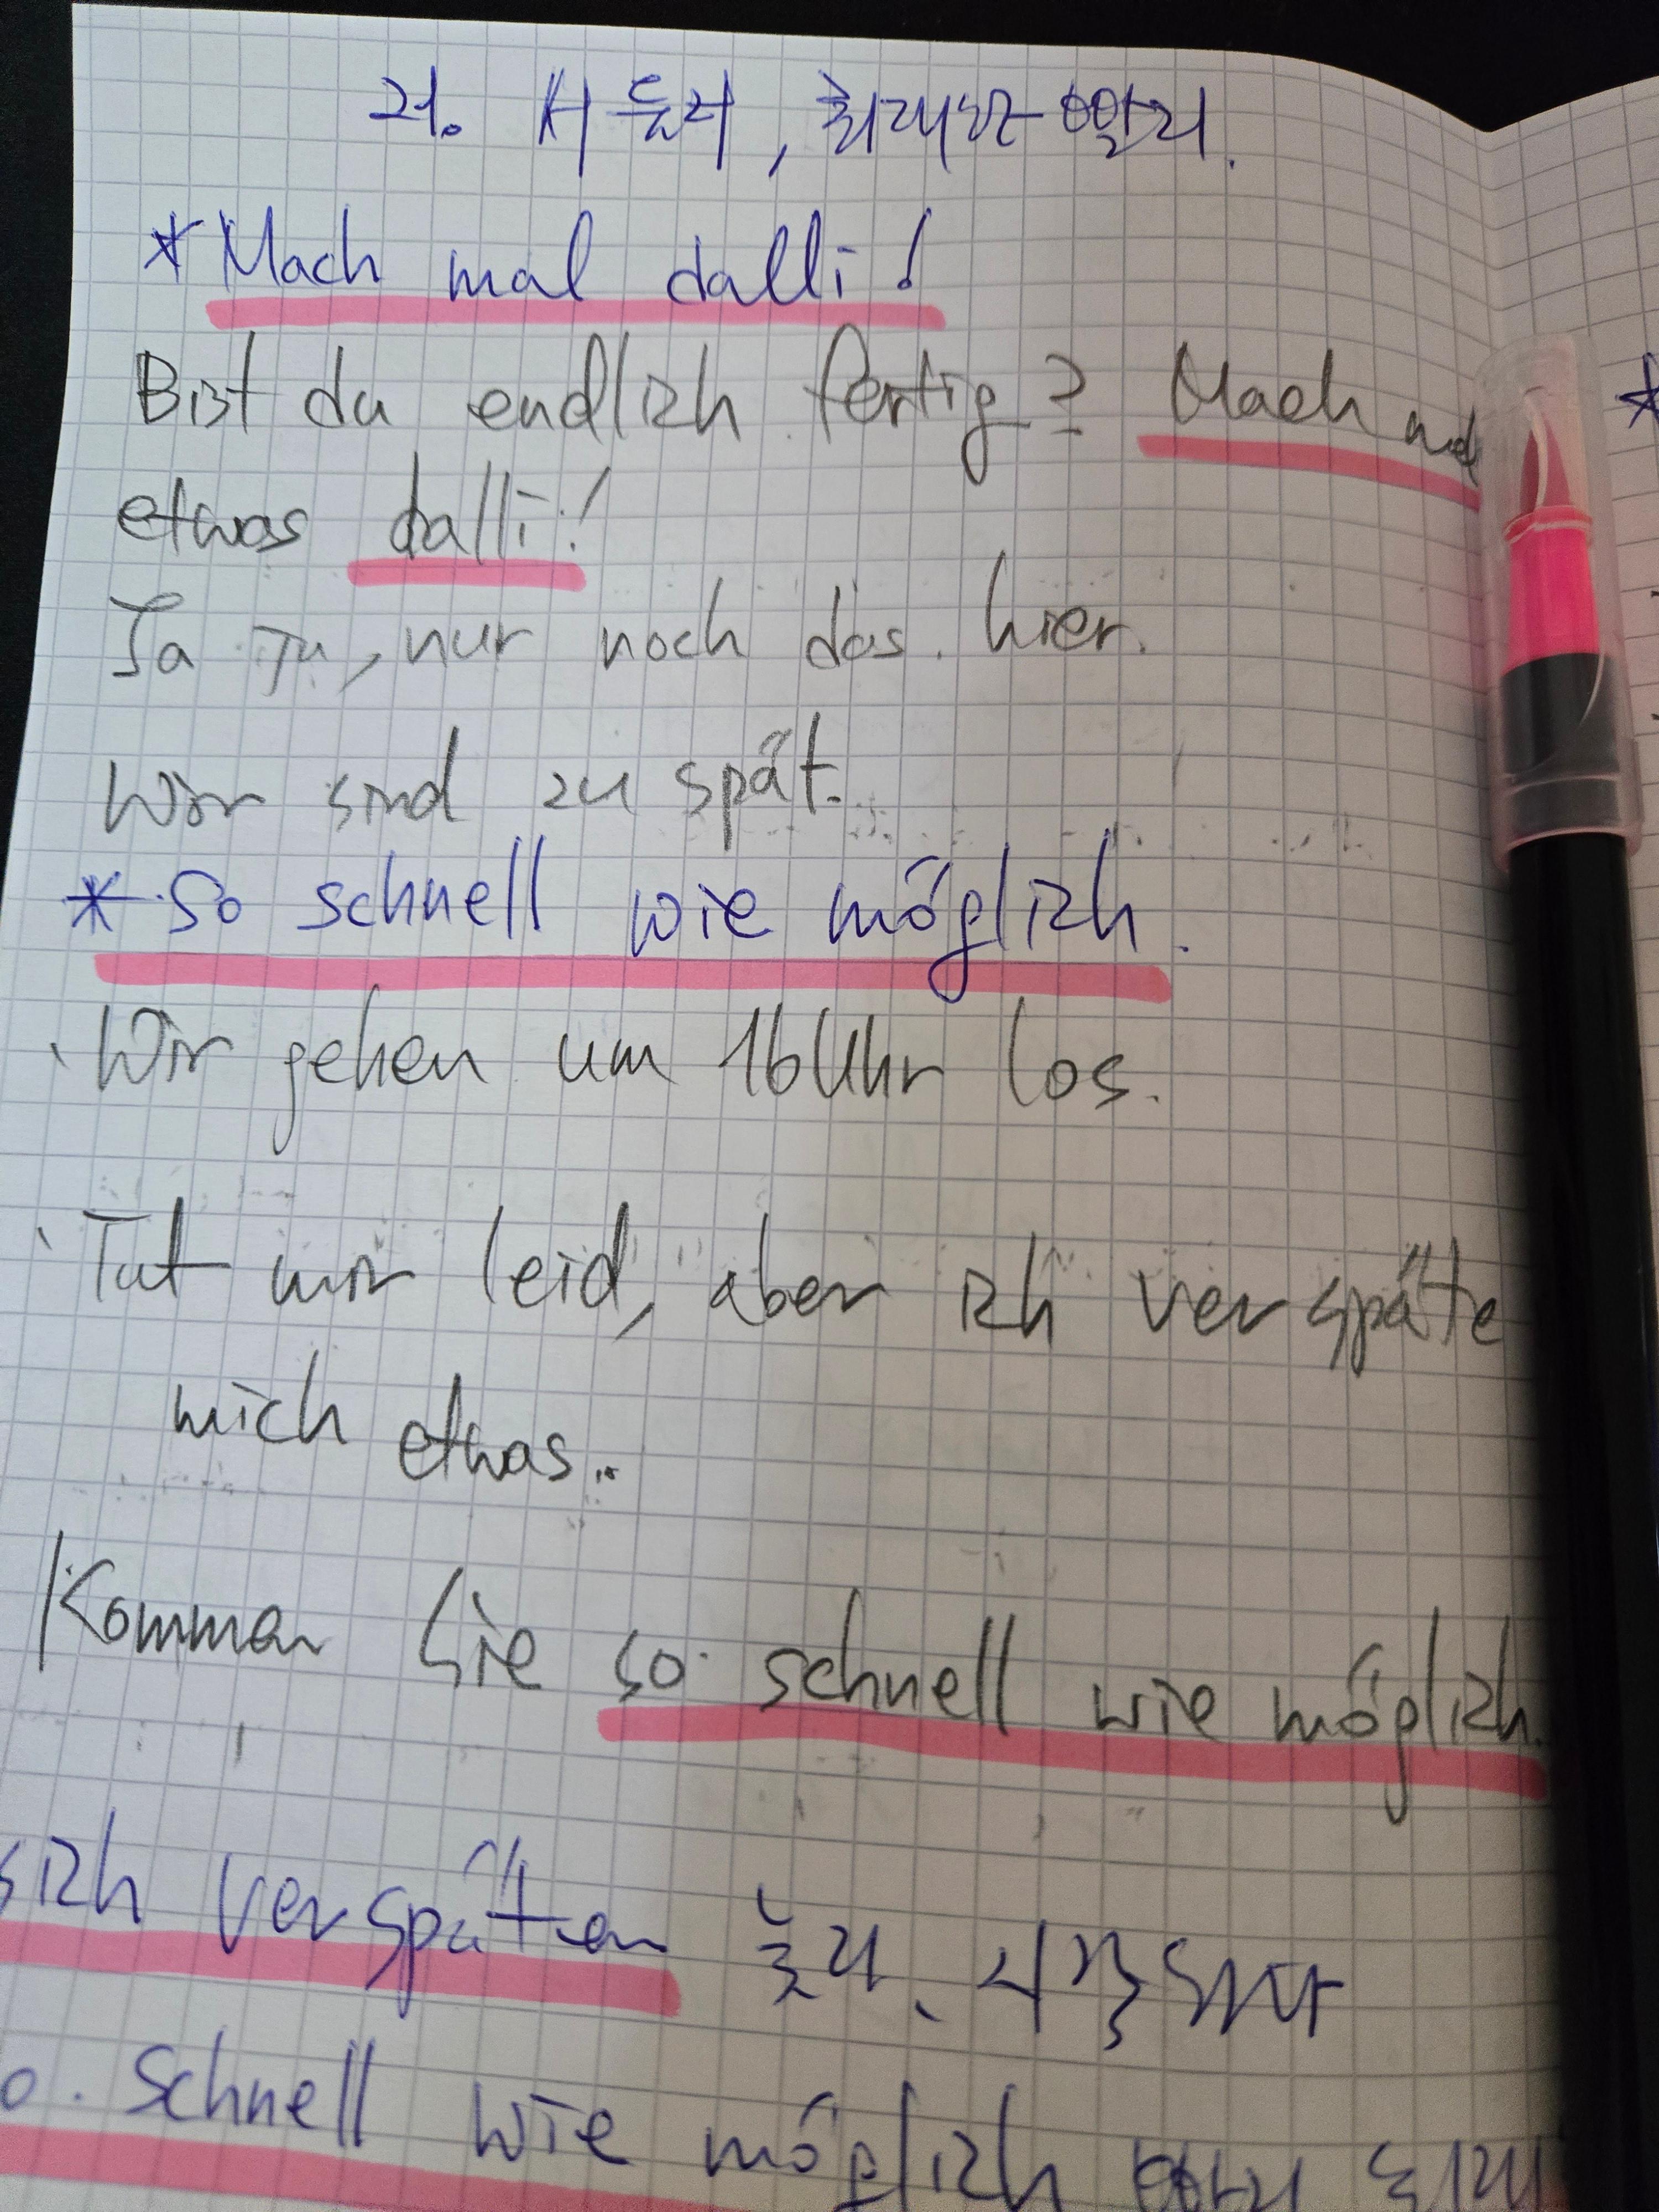 21. 서둘러, 최대한 빨리.
* Mach mal dalli!
Bist du endlich fertig? Mach mal
etwas dalli!
Ja ja, nur noch das hier.
Wir sind zu spät.
* So schnell wie möglich.
Wir gehen um 16 Uhr los.
Tut mir leid, aber ich verspäte
mich etwas.
Kommen Sie so schnell wie möglich.
sich verspäten 늦다, 지각하다
schnell wie möglich